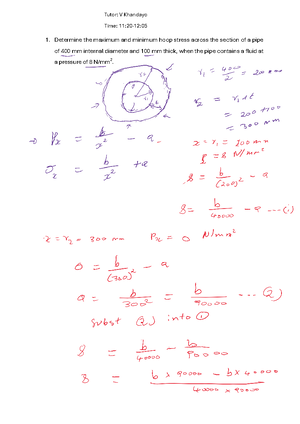 Tutor: V Khandaye
Time: 11:20-12:05
1. Determine the maximum and minimum hoop stress across the section of a pipe
of 400 mm internal diameter and 100 mm thick, when the pipe contains a fluid at
a pressure of 8 N/mm².
r₁ = 400/2 = 200 mm
r₂ = r₁ + t
= 200 + 100
= 300 mm
→ Pₓ = b/x² - a
σₓ = b/x² + a
x = r₁ = 200 mm
8 N/mm²
8 = b/(200)² - a
8 = b/40000 - a --- (i)
x = r₂ = 300 mm Pₓ = 0 N/mm²
0 = b/(300)² - a
a = b/300² = b/90000 --- (2)
Subst (2) into (1)
8 = b/40000 - b/90000
8 = (b x 90000 - b x 40000)/(40000 x 90000)